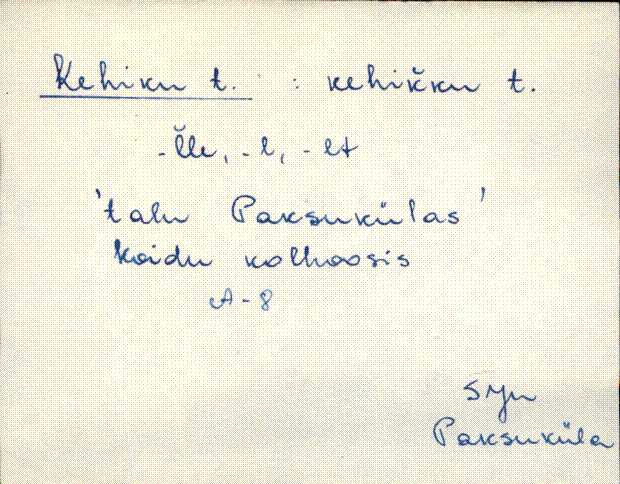 Kehiku t. : kehik̆ku t.
-l̆le, -l, -lt
'talu Paksukülas'
Koidu kolhoosis
A-8
SJn
Paksuküla